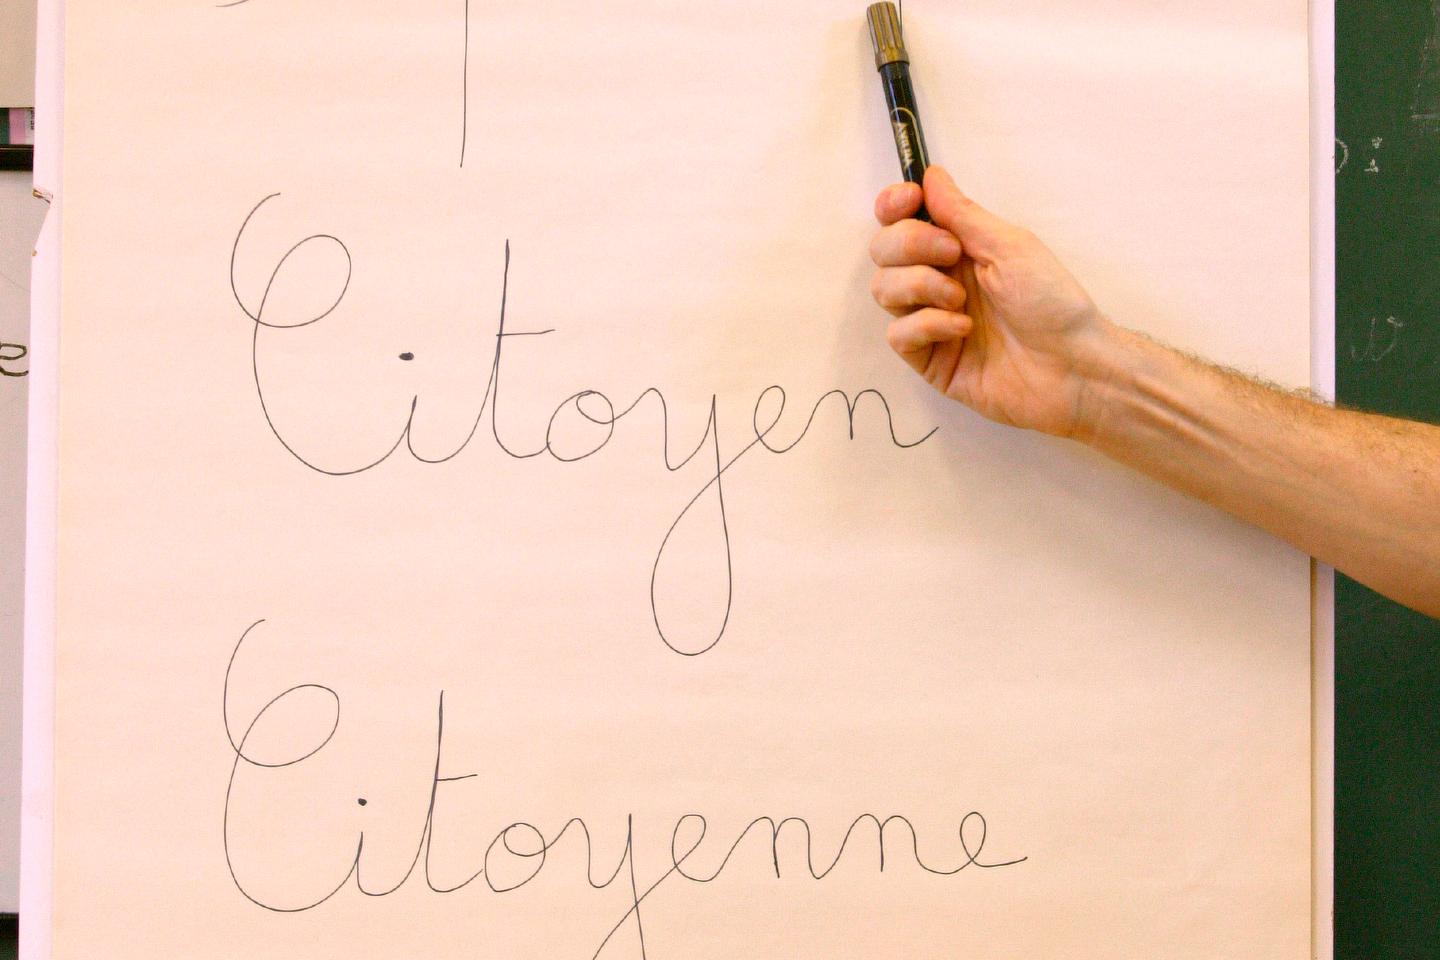 Citoyen
Citoyenne